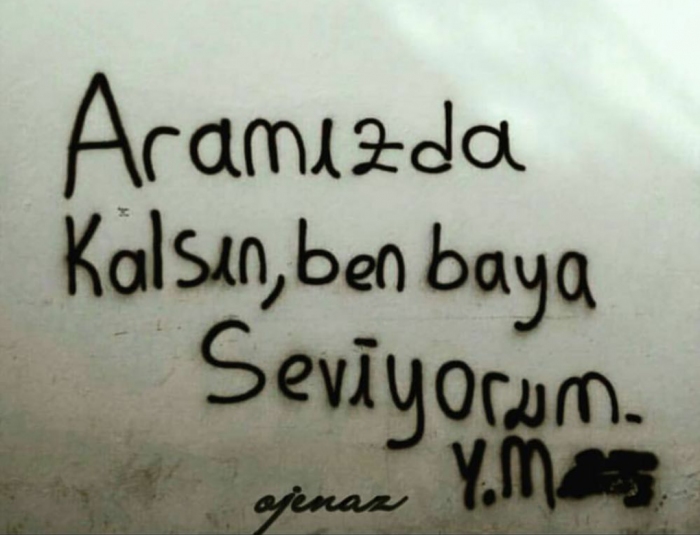 Aramızda
Kalsın, ben baya
Seviyorum.
Y.M
ojenaz